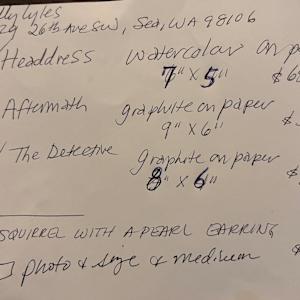 lly Lyles
24 26th Ave SW, Sea, WA 98106
Headdress watercolor on p
7" x 5" $6
Aftermath graphite on paper
9" x 6" $
The Detective graphite on paper
8" x 6" $
SQUIRREL WITH A PEARL EARRING
photo & size & medium $